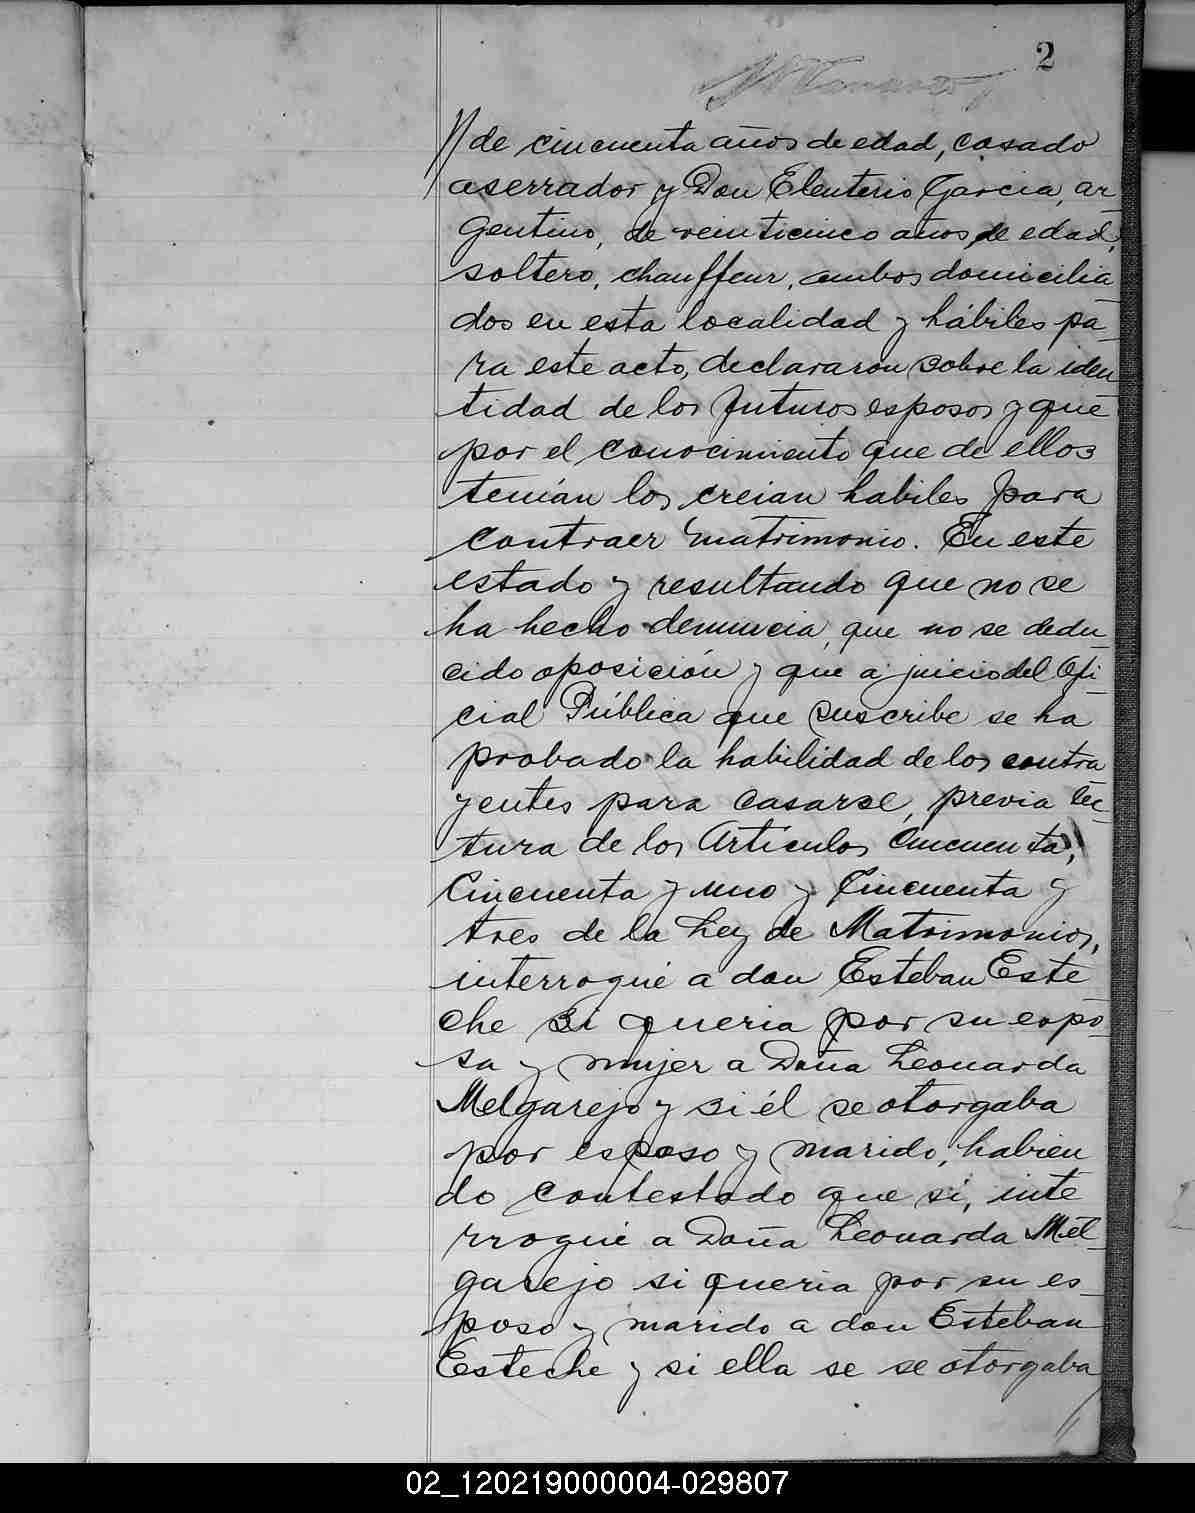 2
// de cincuenta años de edad, casado
aserrador y Don Eleuterio Garcia, ar-
gentino, de veinticinco años de edad,
soltero, chauffeur, ambos domicilia-
dos en esta localidad y hábiles pa-
ra este acto, declararon sobre la iden
tidad de los futuros esposos y que
por el conocimiento que de ellos
tenían los creian habiles para
contraer matrimonio. En este
estado y resultando que no se
ha hecho denuncia, que no se dedu-
cido oposición y que a juicio del Ofi-
cial Pública que suscribe se ha
probado la habilidad de los contra
yentes para casarse, previa lec-
tura de los Artículos Cincuenta,
Cincuenta y uno y Cincuenta y
tres de la Ley de Matrimonios,
interrogué a don Esteban Este-
che si queria por su espo-
sa y mujer a Doña Leonarda
Melgarejo y si él se otorgaba
por esposo y marido, habien
do contestado que si, inte
rrogué a Doña Leonarda Mel-
garejo si queria por su es-
poso y marido a don Esteban
Esteche y si ella se se otorgaba
//
02_120219000004-029807